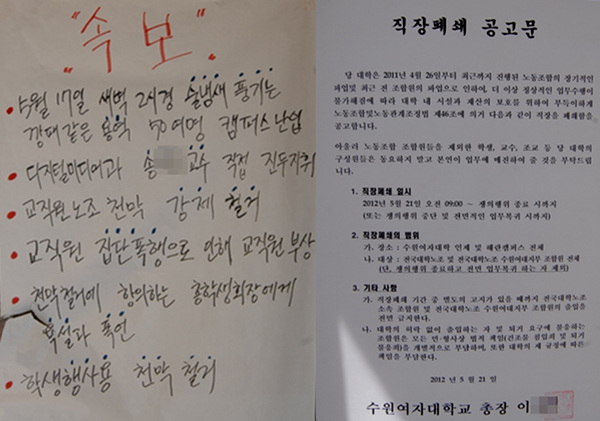 "속보"
• 5월 17일 새벽 2시경 술냄새 풍기는
깡패같은 용역 50여명 캠퍼스 난입
• 디지털미디어과 송 교수 직접 진두지휘
• 교직원노조 천막 강제 철거
• 교직원 집단폭행으로 인해 교직원 부상
• 천막철거에 항의하는 총학생회장에게
욕설과 폭언
• 학생행사용 천막 철거
직장폐쇄 공고문
당 대학은 2011년 4월 26일부터 최근까지 진행된 노동조합의 장기적인
파업및 최근 전 조합원의 파업으로 인하여, 더 이상 정상적인 업무수행이
불가해짐에 따라 대학 내 시설과 재산의 보호를 위하여 부득이하게
노동조합및노동관계조정법 제46조에 의거 다음과 같이 직장을 폐쇄함을
공고합니다.
아울러 노동조합 조합원들을 제외한 학생, 교수, 조교 등 당 대학의
구성원들은 동요하지 말고 본연이 업무에 매진하여 줄 것을 부탁드립
니다.
1. 직장폐쇄 일시
2012년 5월 21일 오전 09:00 ~ 쟁의행위 종료 시까지
(또는 쟁의행위 중단 및 전면적인 업무복귀 시까지)
2. 직장폐쇄의 범위
가. 장소 : 수원여자대학 인제 및 해란캠퍼스 전체
나. 대상 : 전국대학노조 및 전국대학노조 수원여대지부 조합원 전체
(단, 쟁의행위 종료하고 전면 업무복귀 하는 자 제외)
3. 기타 사항
가. 직장폐쇄 기간 중 별도의 고지가 있을 때까지 전국대학노조
소속 조합원 및 전국대학노조 수원여대지부 조합원의 출입을
전면 금지한다.
나. 대학의 허락 없이 출입하는 자 및 퇴거 요구에 불응하는
조합원은 모든 민·형사상 법적 책임(건조물 침입죄 및 퇴거
불응죄)을 개별적으로 부담하며, 또한 대학의 제 규정에 따른
책임을 부담한다.
2012 년 5 월 21 일
수원여자대학교 총장 이